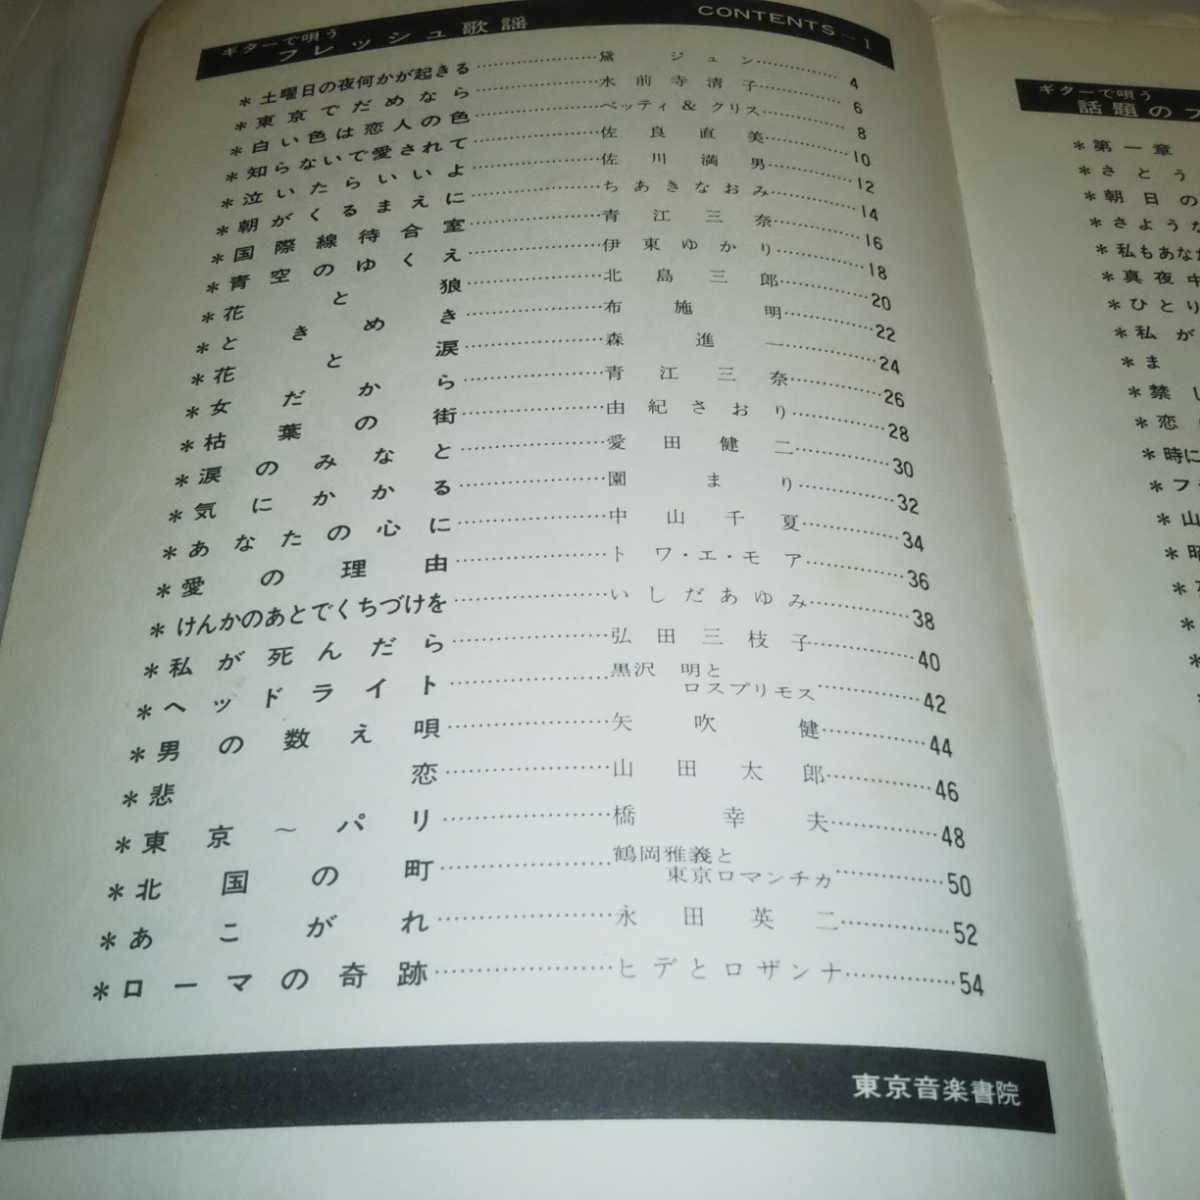 ギターで唄う
フレッシュ歌謡
CONTENTS-1
*土曜日の夜何かが起きる……黛 ジュン……4
*東京でだめなら……水前寺清子……6
*白い色は恋人の色……ベッティ&クリス……8
*知らないで愛されて……佐良直美……10
*泣いたらいいよ……佐川満男……12
*朝がくるまえに……ちあきなおみ……14
*国際線待合室……青江三奈……16
*青空のゆくえ……伊東ゆかり……18
*花と狼……北島三郎……20
*ときめき……布施明……22
*花と涙……森進一……24
*女だから……青江三奈……26
*枯葉の街……由紀さおり……28
*涙のみなと……愛田健二……30
*気にかかる……園まり……32
*あなたの心に……中山千夏……34
*愛の理由……トワ・エ・モア……36
*けんかのあとでくちづけを……いしだあゆみ……38
*私が死んだら……弘田三枝子……40
*ヘッドライト……黒沢 明とロスプリモス……42
*男の数え唄……矢吹健……44
*悲恋……山田太郎……46
*東京~パリ……橋幸夫……48
*北国の町……鶴岡雅義と東京ロマンチカ……50
*あこがれ……永田英二……52
*ローマの奇跡……ヒデとロザンナ……54
東京音楽書院
ギターで唄う
話題の
*第一章
*さとう
*朝日の
*さような
*私もあなた
*真夜中
*ひとり
*私が
*ま
*禁じ
*恋
*時に
*フ
*山
*昭